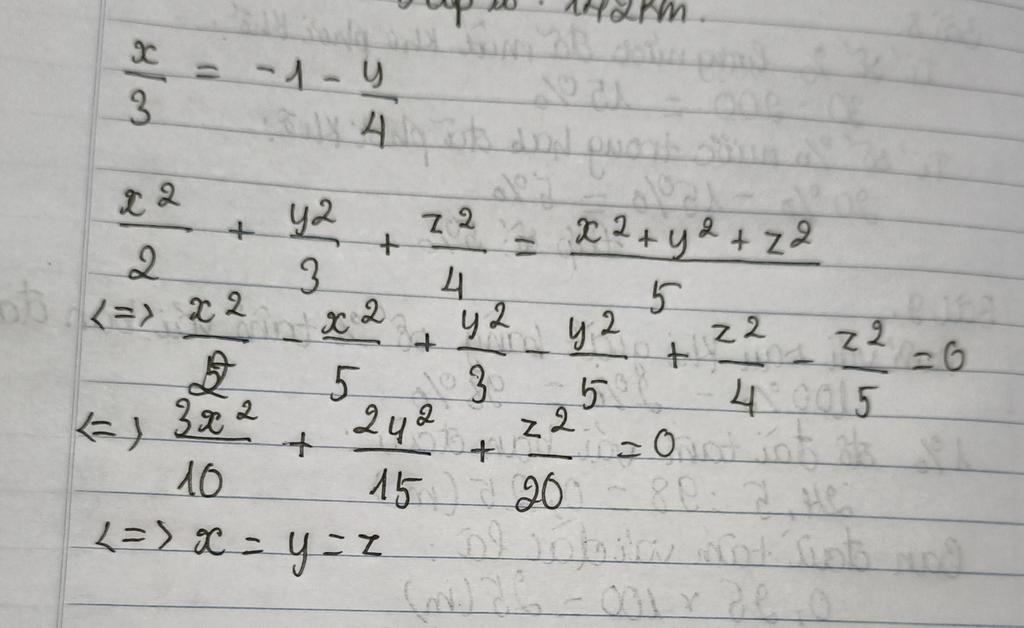 142km.
x/3 = -1 - y/4
x²/2 + y²/3 + z²/4 = (x² + y² + z²)/5
<=> x²/2 - x²/5 + y²/3 - y²/5 + z²/4 - z²/5 = 0
<=> 3x²/10 + 2y²/15 + z²/20 = 0
<=> x = y = z